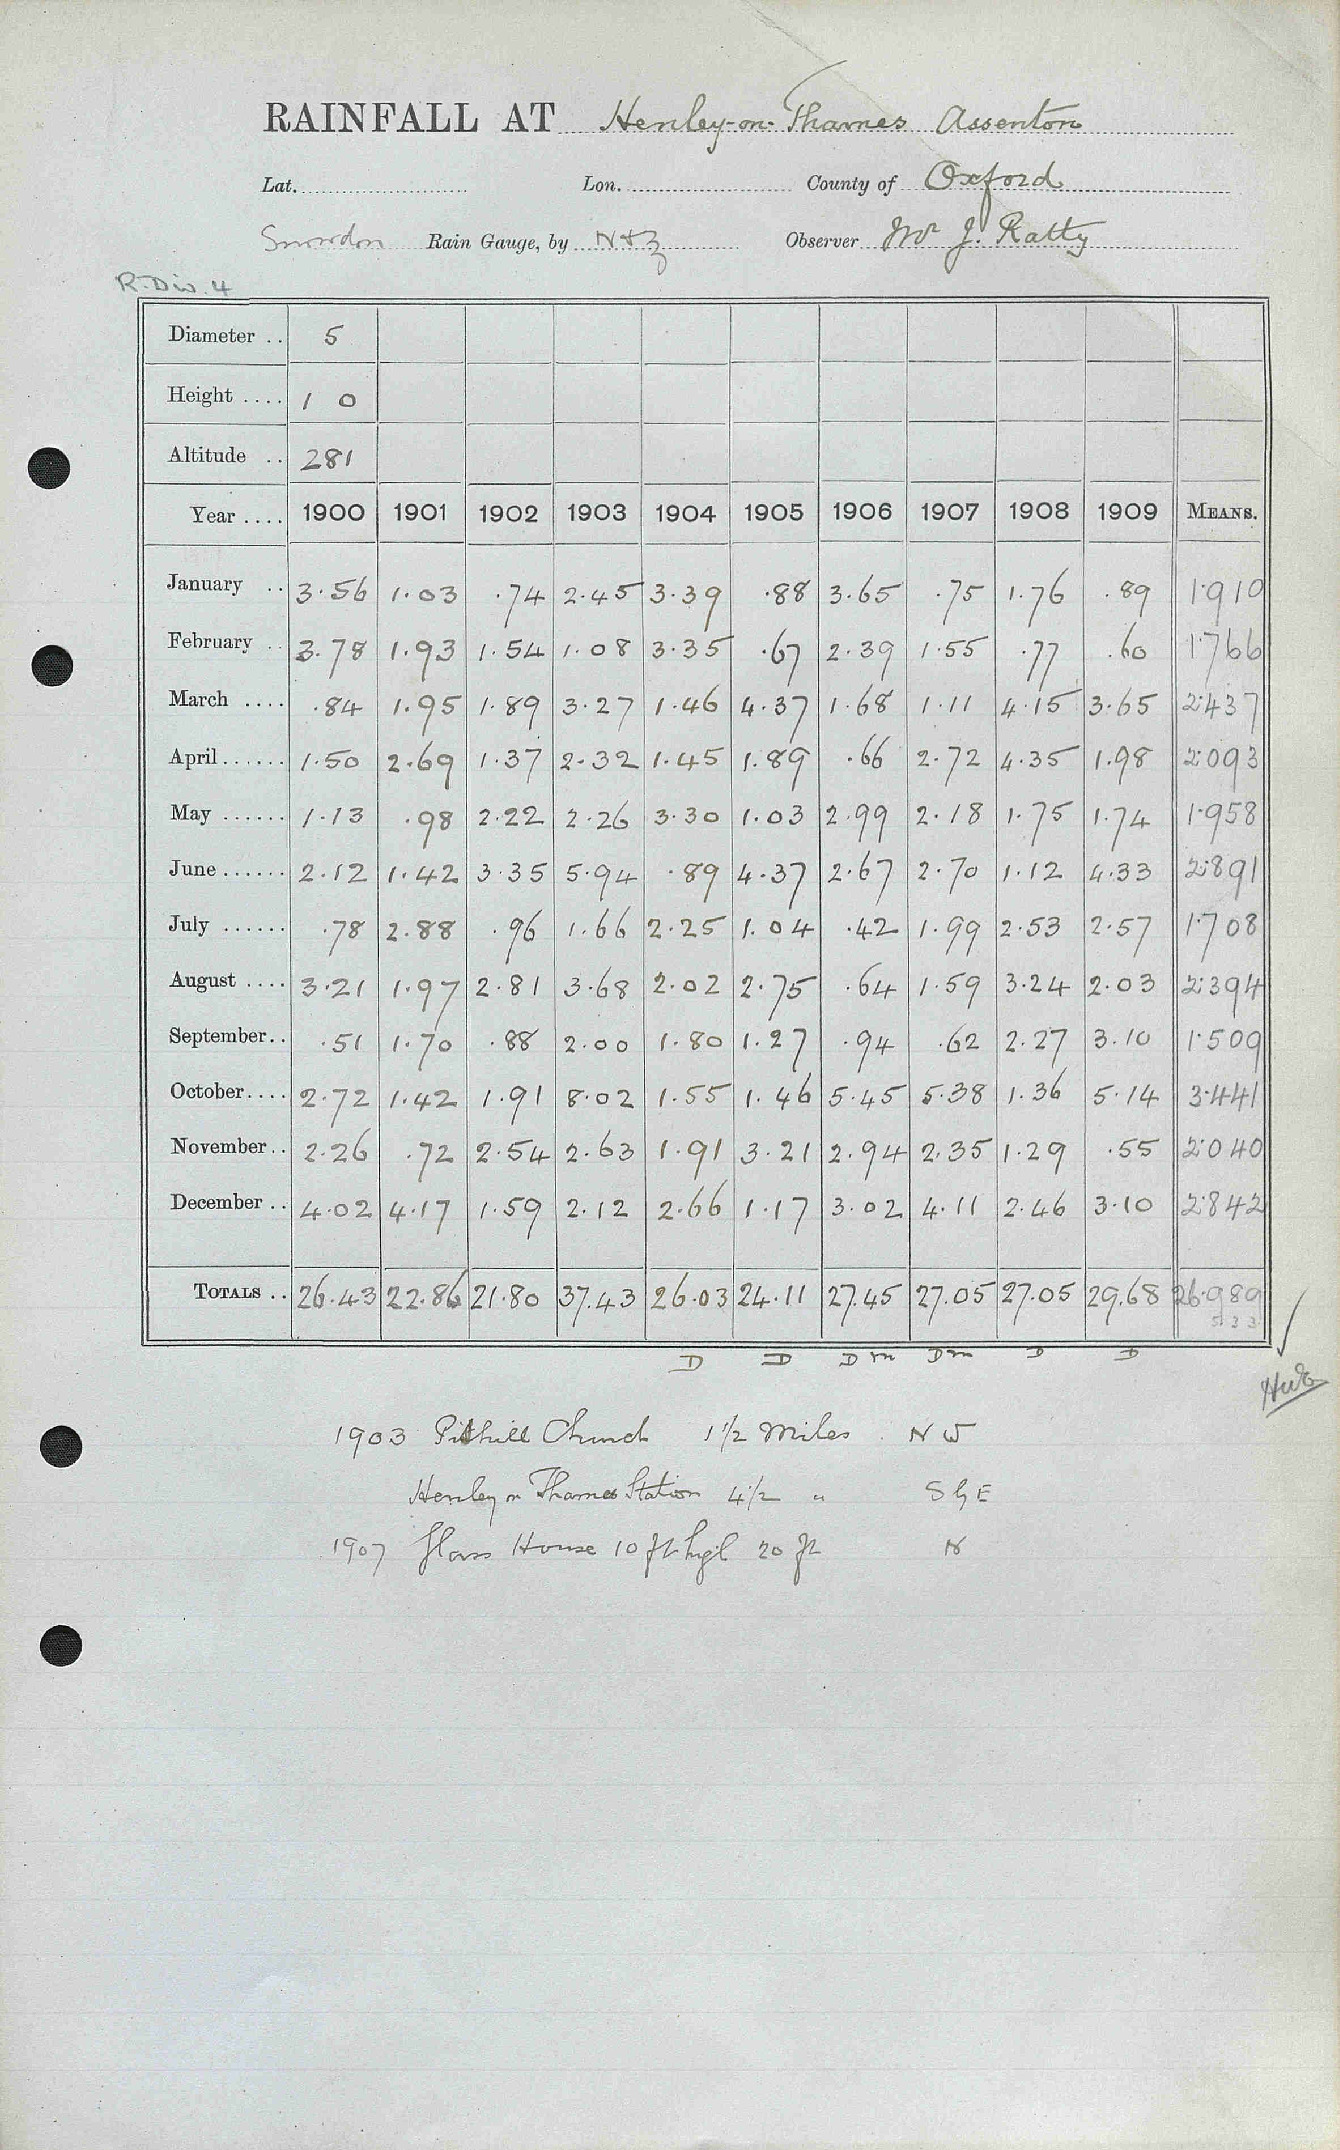 RAINFALL AT Henley-on-Thames Assenton
Lat. Lon. County of Oxford
Snowdon Rain Gauge, by N & Z Observer Mr J. Ratty
R. Div. 4
Diameter .. 5
Height .... 1 0
Altitude .. 281
Year .... 1900 1901 1902 1903 1904 1905 1906 1907 1908 1909 MEANS.
January .. 3.56 1.03 .74 2.45 3.39 .88 3.65 .75 1.76 .89 1.910
February .. 3.78 1.93 1.54 1.08 3.35 .67 2.39 1.55 .77 .60 1.766
March .... .84 1.95 1.89 3.27 1.46 4.37 1.68 1.11 4.15 3.65 2.437
April...... 1.50 2.69 1.37 2.32 1.45 1.89 .66 2.72 4.35 1.98 2.093
May ...... 1.13 .98 2.22 2.26 3.30 1.03 2.99 2.18 1.75 1.74 1.958
June...... 2.12 1.42 3.35 5.94 .89 4.37 2.67 2.70 1.12 4.33 2.891
July ...... .78 2.88 .96 1.66 2.25 1.04 .42 1.99 2.53 2.57 1.708
August .... 3.21 1.97 2.81 3.68 2.02 2.75 .64 1.59 3.24 2.03 2.394
September.. .51 1.70 .88 2.00 1.80 1.27 .94 .62 2.27 3.10 1.509
October.... 2.72 1.42 1.91 8.02 1.55 1.46 5.45 5.38 1.36 5.14 3.441
November.. 2.26 .72 2.54 2.63 1.91 3.21 2.94 2.35 1.29 .55 2.040
December .. 4.02 4.17 1.59 2.12 2.66 1.17 3.02 4.11 2.46 3.10 2.842
TOTALS .. 26.43 22.86 21.80 37.43 26.03 24.11 27.45 27.05 27.05 29.68 26.989
533
D D Dm Dm D D
1903 Pishill Church 1½ Miles NW
Henley on Thames Station 4½ " S by E
1907 Glass House 10 ft high 20 ft N